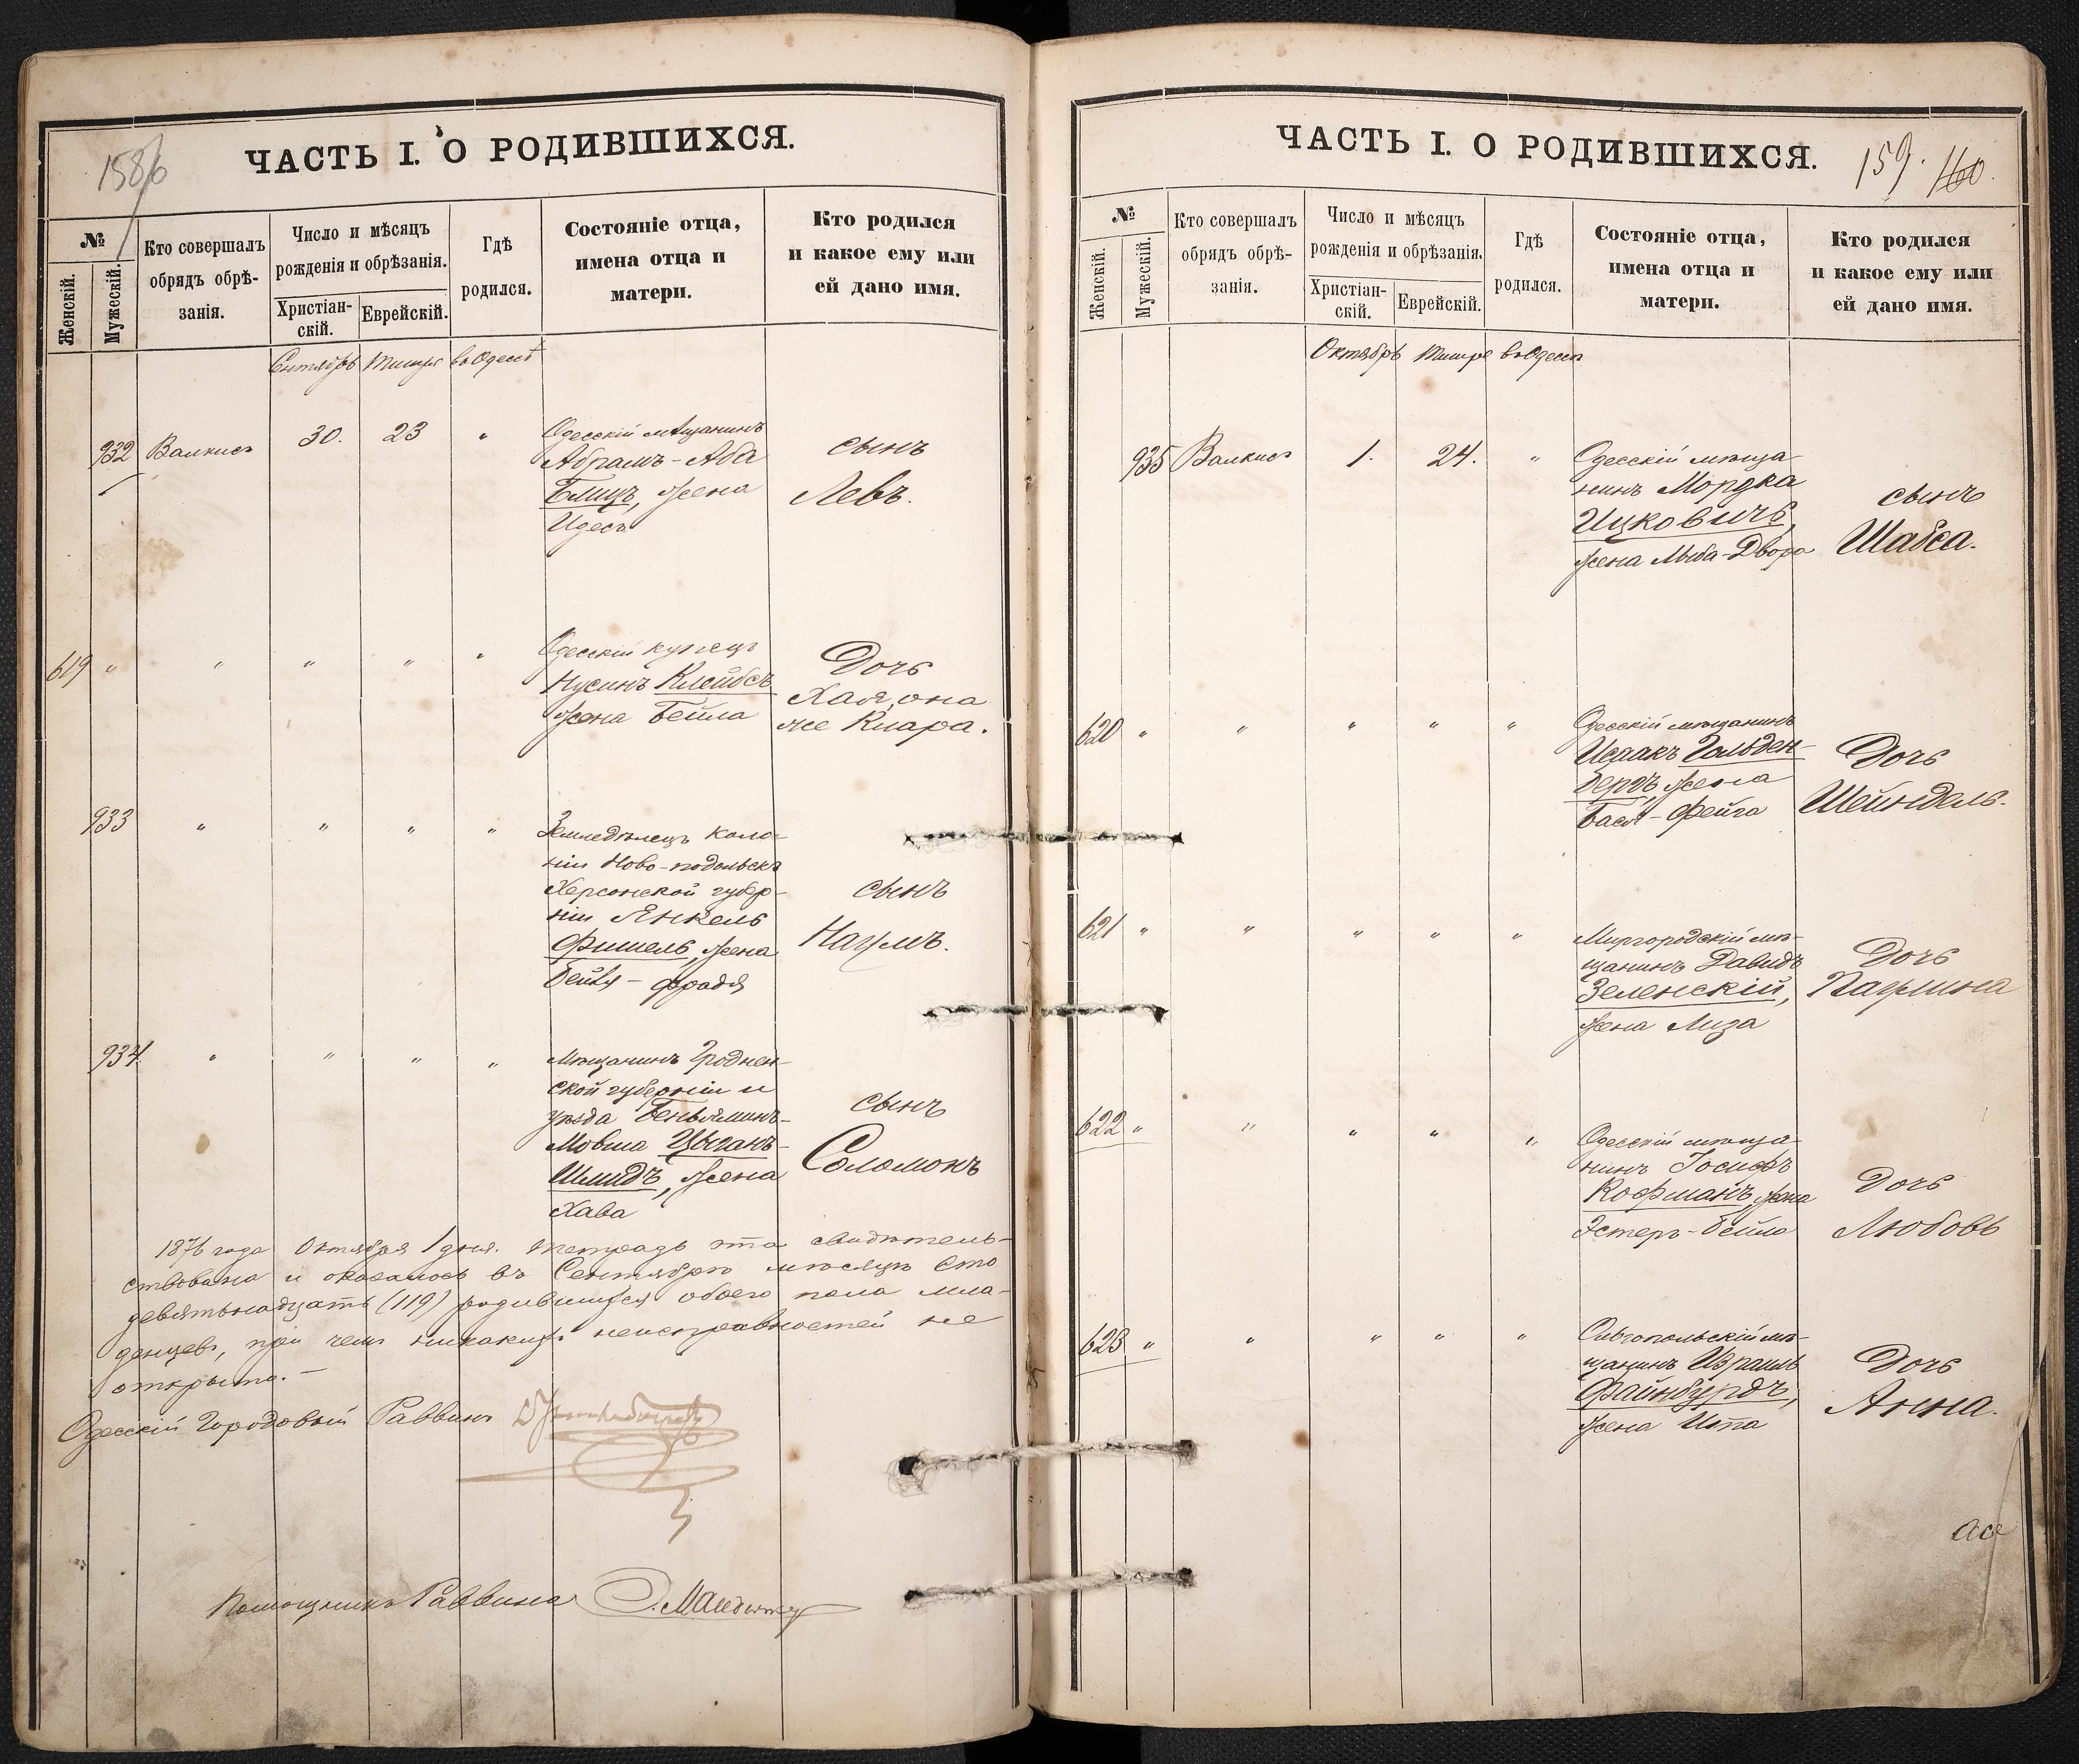 158/б
ЧАСТЬ I. О РОДИВШИХСЯ.
№
Женскій.
Мужескій.
Кто совершалъ
обрядъ обрѣ-
занія.
Число и мѣсяцъ
рожденія и обрѣзанія.
Христіан-
скій.
Еврейскій.
Гдѣ
родился.
Состояніе отца,
имена отца и
матери.
Кто родился
и какое ему или
ей дано имя.
Сентябрь Тишре въ Одессѣ
932 Валкисъ 30. 23 "
Одесскій мѣщанинъ
Абрамъ-Аба
Блицъ, жена
Идесъ
сынъ
Левъ.
619 " " " " "
Одесскій купецъ
Нусинъ Клейбсъ
жена Бейла
Дочь
Хая, она
же Клара.
933 " " " "
Земледѣлецъ коло-
ніи Ново-подольскъ
Херсонской губер-
ніи Янкель
Фишель, жена
Бейля - фрадя
сынъ
Наумъ.
934. " " " "
Мѣщанинъ Гроднен-
ской губерніи и
уѣзда Беньяминъ-
Мовша Цыганъ-
Шмидъ, жена
Хава
сынъ
Соломонъ
1876 года Октября 1 дня. Тетрадь эта свидѣтель-
ствована и оказалось въ Сентябрѣ мѣсяцѣ сто
девятьнадцать (119) родившихся обоего пола мла-
денцевъ, при чемъ никакихъ неисправностей не
открыто.-
Одесскій Городовой Раввинъ
Помощникъ Раввина
ЧАСТЬ I. О РОДИВШИХСЯ.
159. 160.
№
Женскій.
Мужескій.
Кто совершалъ
обрядъ обрѣ-
занія.
Число и мѣсяцъ
рожденія и обрѣзанія.
Христіан-
скій.
Еврейскій.
Гдѣ
родился.
Состояніе отца,
имена отца и
матери.
Кто родился
и какое ему или
ей дано имя.
Октябрь Тишре въ Одессѣ
935 Валкисъ 1. 24. "
Одесскій мѣща-
нинъ Мордка
Ицковичъ,
жена Лыба-Двора
сынъ
Шабса.
620 " " " " "
Одесскій мѣщанинъ
Исаакъ Гольден-
бергъ, жена
Бася - Фейга
Дочь
Шейндель.
621 " " " " "
Миргородскій мѣ-
щанинъ Давидъ
Зеленскій,
жена Лиза
Дочь
Паулина
622 " " " " "
Одесскій мѣща-
нинъ Іосифъ
Кофманъ, жена
Эстеръ-Бейла
Дочь
Любовь
623 " " " " "
Ольгопольскій мѣ-
щанинъ Израиль
Файнбурдъ,
жена Ита
Дочь
Анна.